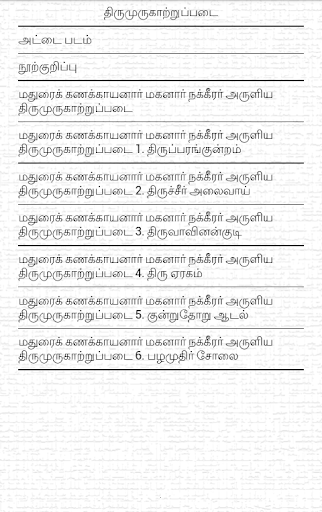 திருமுருகாற்றுப்படை
அட்டை படம்
நூற்குறிப்பு
மதுரைக் கணக்காயனார் மகனார் நக்கீரர் அருளிய
திருமுருகாற்றுப்படை
மதுரைக் கணக்காயனார் மகனார் நக்கீரர் அருளிய
திருமுருகாற்றுப்படை 1. திருப்பரங்குன்றம்
மதுரைக் கணக்காயனார் மகனார் நக்கீரர் அருளிய
திருமுருகாற்றுப்படை 2. திருச்சீர் அலைவாய்
மதுரைக் கணக்காயனார் மகனார் நக்கீரர் அருளிய
திருமுருகாற்றுப்படை 3. திருவாவினன்குடி
மதுரைக் கணக்காயனார் மகனார் நக்கீரர் அருளிய
திருமுருகாற்றுப்படை 4. திரு ஏரகம்
மதுரைக் கணக்காயனார் மகனார் நக்கீரர் அருளிய
திருமுருகாற்றுப்படை 5. குன்றுதோறு ஆடல்
மதுரைக் கணக்காயனார் மகனார் நக்கீரர் அருளிய
திருமுருகாற்றுப்படை 6. பழமுதிர் சோலை